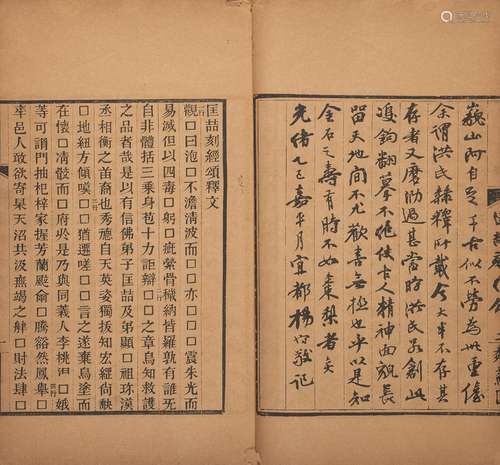 巍山阿自足千古似不勞為此重儓
余謂洪氏隸釋所載今大半不存其
存者又磨泐過甚當時洪氏若創此
雙鉤翻摹不絕使古人精神面貌長
留天地間不尤歡喜無極也乎以是知
金石之壽有時不如棗梨者矣
光緒乙巳嘉平月宜都楊守敬記
匡喆刻經頌釋文
觀□曰泡□不澹清波而□□亦□□□震朱光而
易滅但以四毒□躬□疵縈骨穢納皆羅敦有誰旡
自非體括三乘身苞十力詎辯□□之章鳥知救護
之品者哉是以有信佛弟子匡喆及弟顯□祖珠漢
丞相衡之苗裔也秀德自天英姿獨拔知宏經尚缺
□地紐方傾嘆□□酋遷嗟□□言之遂棄鳥塗而
在懷□淒骰而□府於是乃與同義人李桃□娥
等可謂門抽杞梓家握芳蘭颷俞□騰谿然鳳舉□
率邑人敢欲寄杲天沼共汲燕翊之□財法肆□